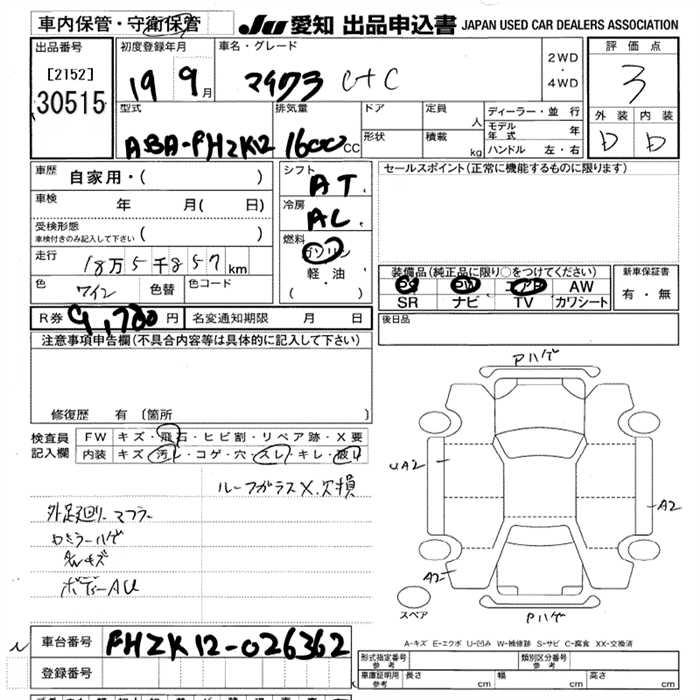 車内保管・守衛保管
JU 愛知 出品申込書 JAPAN USED CAR DEALERS ASSOCIATION
出品番号
[2152]
30515
初度登録年月
19 9月
車名・グレード
マイクラ C+C
2WD
・
4WD
評価点
3
外装 内装
D D
型式
ABA-FHZK12
排気量
1600cc
ドア
形状
定員 人
積載 kg
ディーラー・並行
モデル年式 年
ハンドル 左・右
車歴 自家用・( )
車検 年 月( 日)
受検形態
車検付きのみ記入して下さい ( )
走行 18万5千857km
色 ワイン 色替 色コード
シフト
AT
冷房
AC
燃料
ガソリン
軽・油
( ・ )
セールスポイント(正常に機能するものに限ります)
装備品(純正品に限り○をつけてください)
PS PW エアB AW
SR ナビ TV カワシート
新車保証書
有・無
R券 9,780円 名変通知期限 月 日
後日品
注意事項申告欄(不具合内容等は具体的に記入して下さい)
修復歴 有 〔箇所 〕
検査員
記入欄
FW キズ・飛石・ヒビ割・リペア跡・X要
内装 キズ・汚レ・コゲ・穴・スレ・キレ・破レ
ルーフガラスX.欠損
外足廻り、マフラー
ドミラーハゲ
AWキズ
ボディーAU
Pハゲ
UA2
A2
A2
スペア
Pハゲ
A-キズ E-エクボ U-凹み W-補修跡 S-サビ C-腐食 XX-交換済
車台番号 FHZK12-026362
登録番号
形式指定番号 参考
類別区分番号 参考
車庫証明用 参考 長さ cm 幅 cm 高さ cm